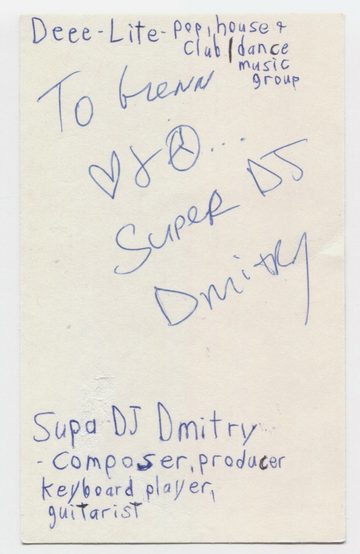 Deee-Lite-pop, house &
club/dance
music
group
To Glenn
♡ & Ⓐ...
Super DJ
Dmitry
Supa DJ Dmitry
- composer, producer
keyboard player,
guitarist